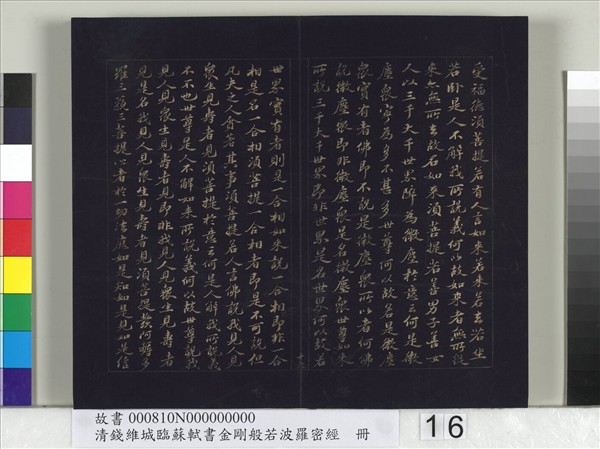 受福德須菩提若有人言如來若來若去若坐
若臥是人不解我所說義何以故如來者無所從
來亦無所去故名如來須菩提若善男子善女
人以三千大千世界碎為微塵於意云何是微
塵眾寧為多不甚多世尊何以故若是微塵
眾實有者佛即不說是微塵眾所以者何佛
說微塵眾即非微塵眾是名微塵眾世尊如來
所說三千大千世界即非世界是名世界何以故若
世界實有者則是一合相如來說一合相即非一合
相是名一合相須菩提一合相者即是不可說但
凡夫之人貪著其事須菩提若人言佛說我見人見
眾生見壽者見須菩提於意云何是人解我所說義
不不也世尊是人不解如來所說義何以故世尊說我
見人見眾生見壽者見即非我見人見眾生見壽者
見是名我見人見眾生見壽者見須菩提發阿耨多
羅三藐三菩提心者於一切法應如是知如是見如是信
故書 000810N000000000
清錢維城臨蘇軾書金剛般若波羅密經 冊
16